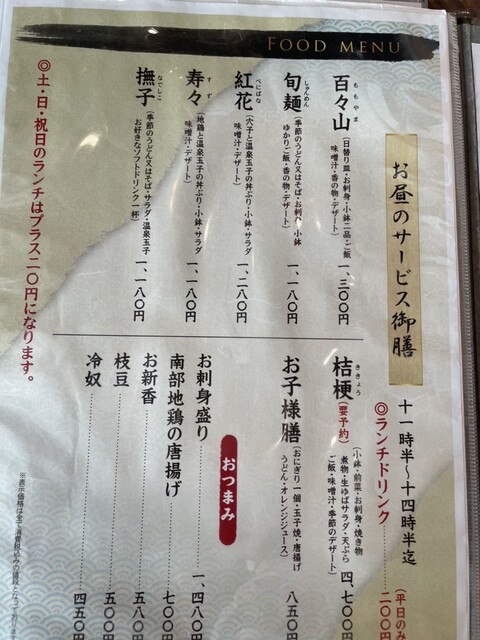 FOOD MENU
お昼のサービス御膳
十一時半～十四時半迄
◎ランチドリンク
(平日のみ
二〇〇円
ももやま
百々山
(日替り皿・お刺身・小鉢二品・ご飯
味噌汁・香の物・デザート)
一、三〇〇円
しゅんめん
旬麺
(季節のうどん又はそば・お刺身・小鉢
ゆかりご飯・香の物・デザート)
一、一八〇円
べにばな
紅花
(穴子と温泉玉子の丼ぶり・小鉢・サラダ
味噌汁・デザート)
一、二八〇円
すず
寿々
(地鶏と温泉玉子の丼ぶり・小鉢・サラダ
味噌汁・デザート)
一、一八〇円
なでしこ
撫子
(季節のうどん又はそば・サラダ・温泉玉子
お好きなソフトドリンク一杯)
一、一八〇円
◎土・日・祝日のランチはプラス二〇円になります。
ききょう
桔梗
(要予約)
(小鉢・前菜・お刺身・焼き物
煮物・生ゆばサラダ・天ぷら
ご飯・味噌汁・季節のデザート)
四、七〇〇円
お子様膳
(おにぎり一個・玉子焼・唐揚げ
うどん・オレンジジュース)
八五〇円
おつまみ
お刺身盛り
一、四八〇円
南部地鶏の唐揚げ
七〇〇円
お新香
五八〇円
枝豆
五〇〇円
冷奴
四五〇円
※表示価格は全て消費税込みの値段となっております